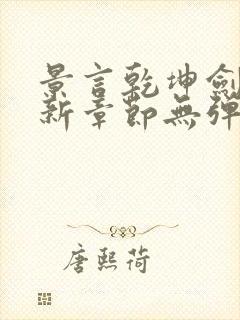 景言乾坤劍
新章節無彈
唐熙荷